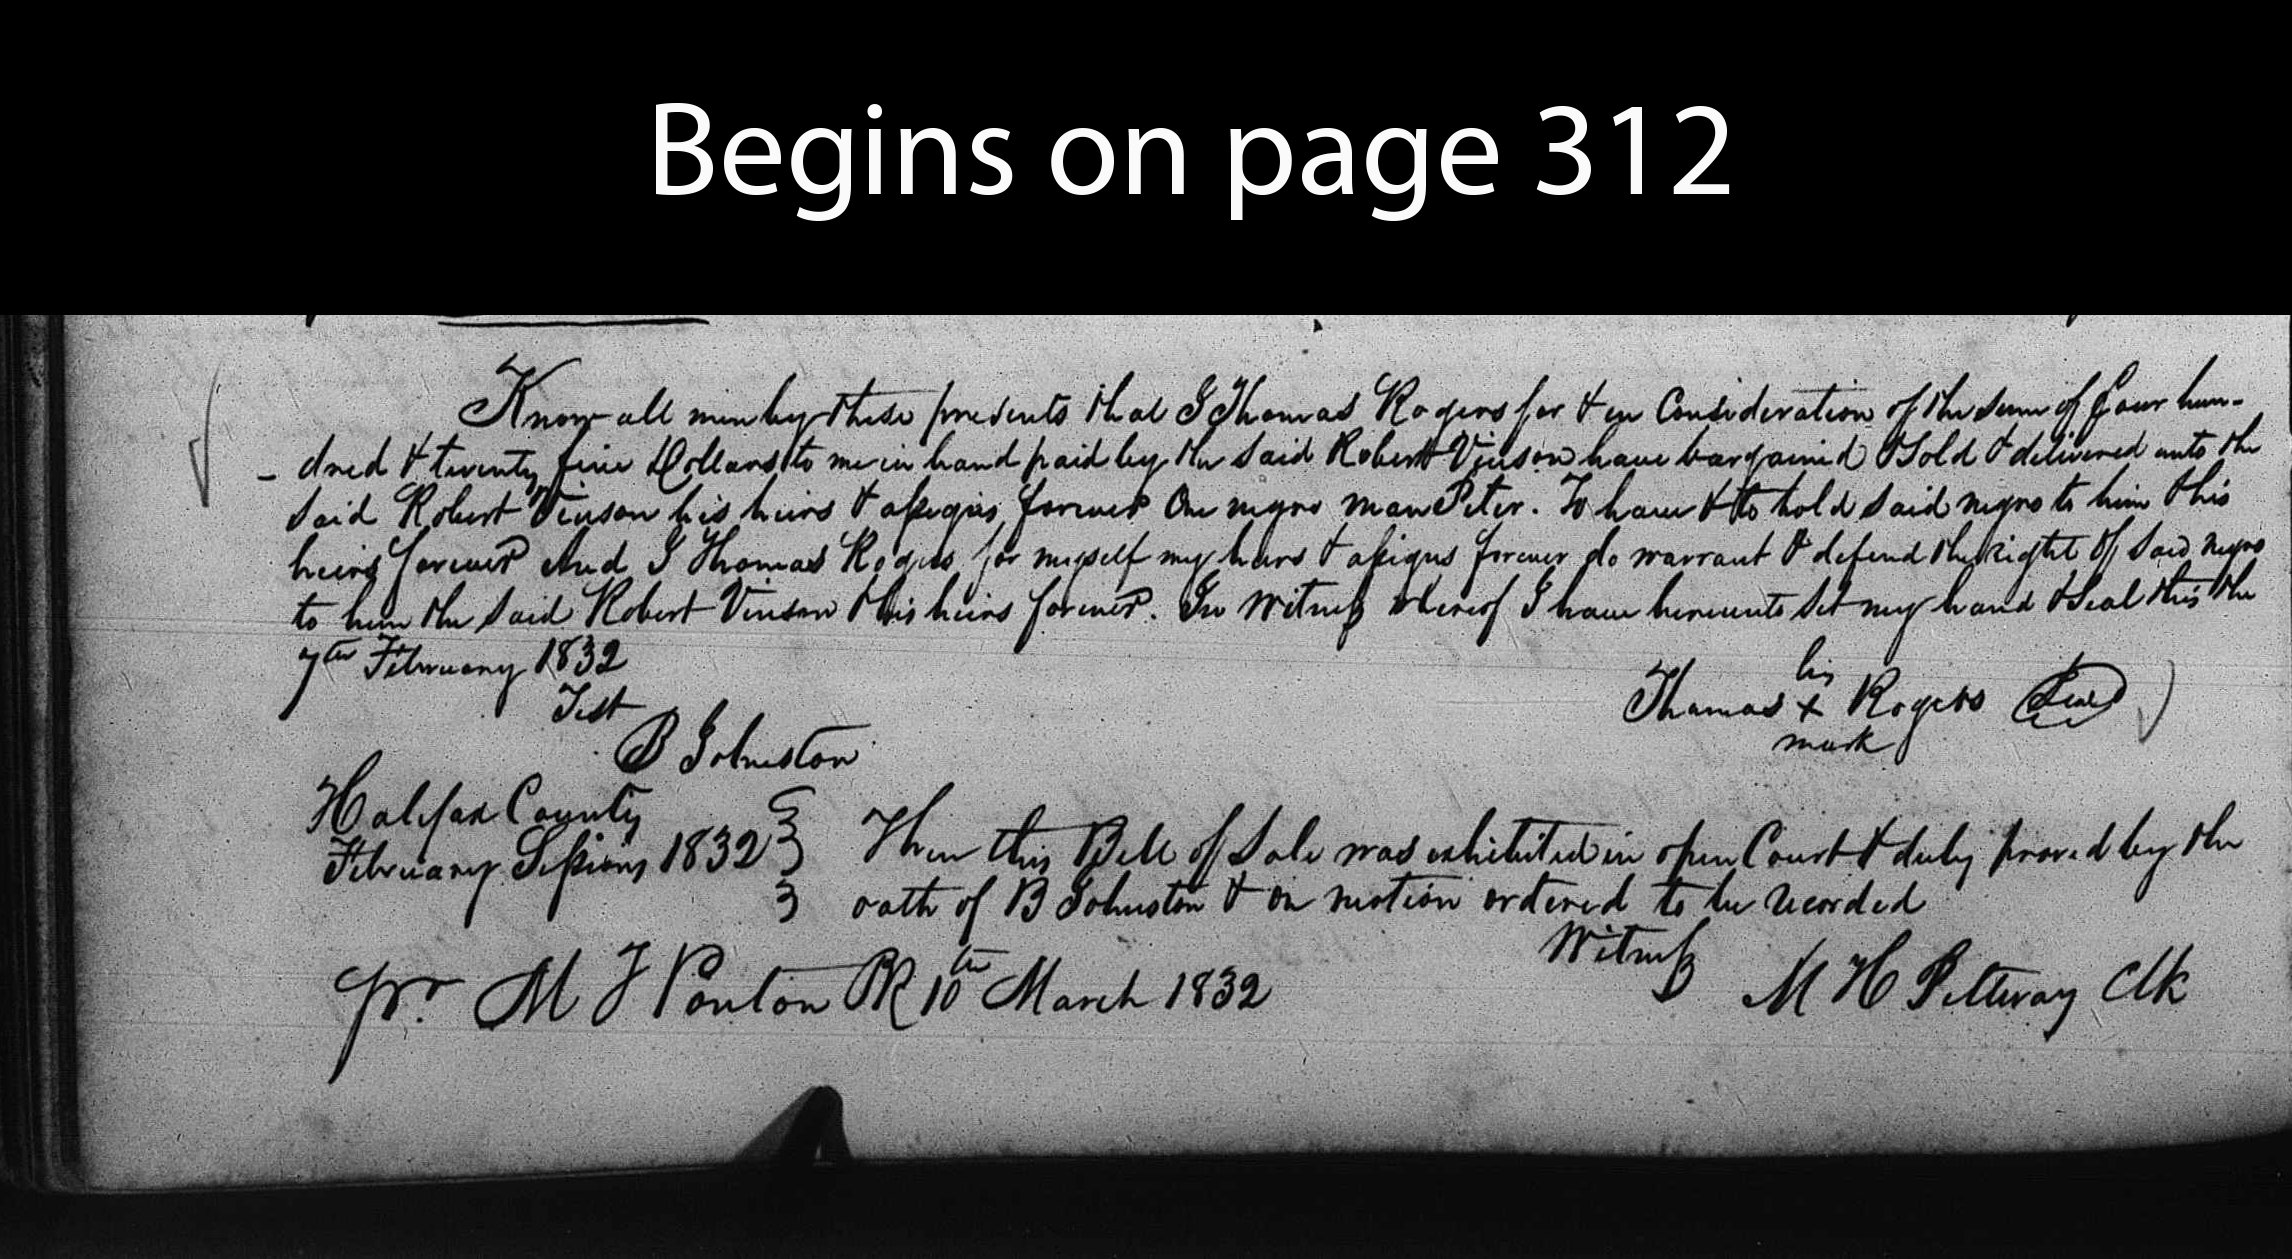 Begins on page 312
Know all men by these presents that I Thomas Rogers for & in Consideration of the sum of four hun-
- dred & twenty five Dollars to me in hand paid by the said Robert Vinson have bargained & Sold & delivered unto the
said Robert Vinson his heirs & assigns forever One negro man Peter. To have & to hold said negro to him & his
heirs forever And I Thomas Rogers for myself my heirs & assigns forever do warrant & defend the right of said negro
to him the said Robert Vinson & his heirs forever. In Witness whereof I have hereunto set my hand & Seal this the
7th February 1832
his
Thomas + Rogers Seal
mark
Test
B Johnston
Halifax County
February Sessions 1832 Then this Bill of Sale was exhibited in open Court & duly proved by the
oath of B Johnston & on motion ordered to be recorded
Witness
M H Pettway Clk
pr. M J Ponton PR 10th March 1832